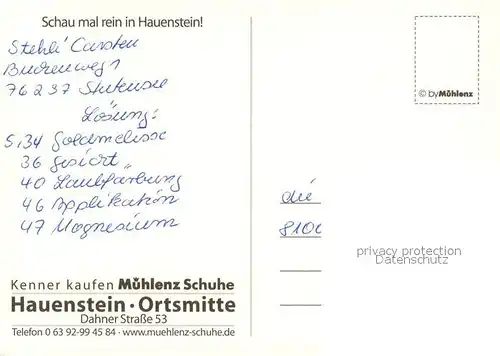 Schau mal rein in Hauenstein!
Stehli Carsten
Buchenweg 1
76297 Stutensee
Lösung:
S. 34 Goldmelisse
36 gesiert "
40 Laubfärbung
46 Applikation
47 Magnesium
© by Mühlenz
die
8100
privacy protection
Datenschutz
Kenner kaufen Mühlenz Schuhe
Hauenstein · Ortsmitte
Dahner Straße 53
Telefon 0 63 92-99 45 84 · www.muehlenz-schuhe.de